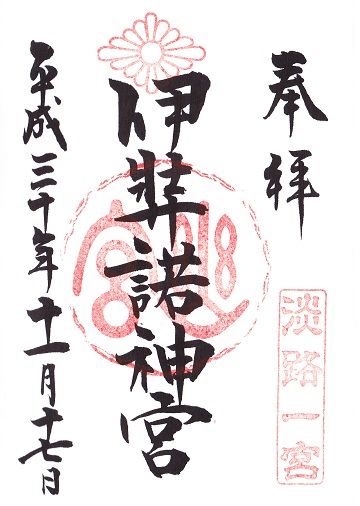 奉拝
淡路一宮
伊弉諾神宮
平成三十年十一月十七日